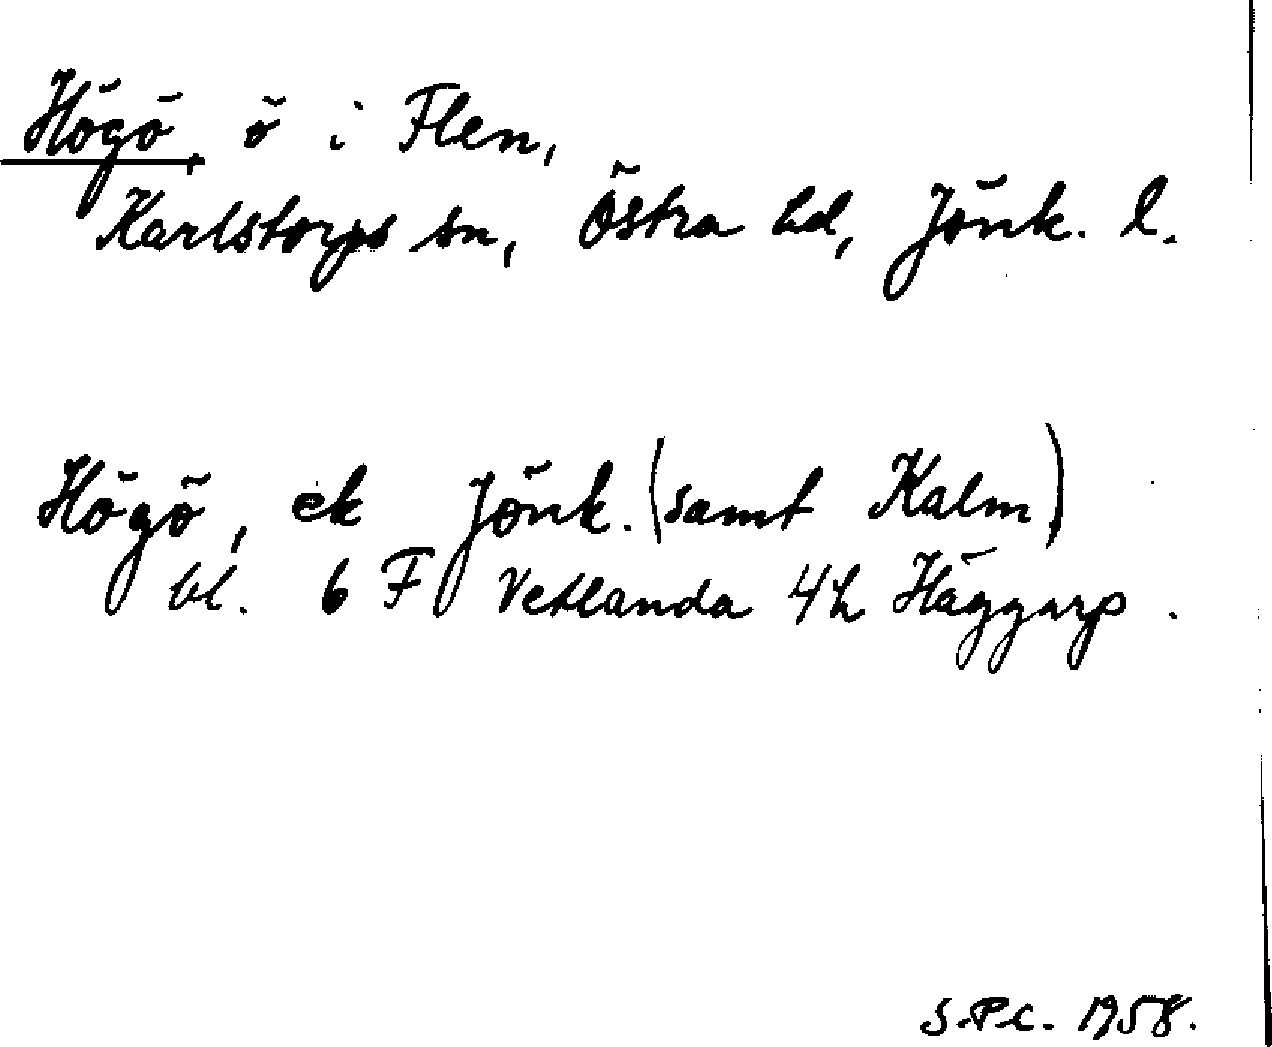 Högö, ö i Flen,
Karlstorps sn, Östra hd, Jönk. l.
Högö, ek Jönk. (samt Kalm)
bl. 6 F Vetlanda 4h Häggarp.
S.P.C. 1958.